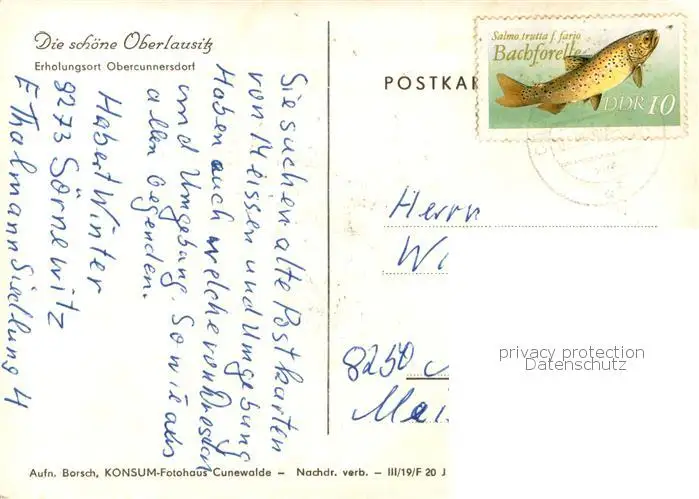 Die schöne Oberlausitz
Erholungsort Obercunnersdorf
Sie suchen alte Postkarten
von Meissen und Umgebung
Haben auch welche von Dresden
und Umgebung. Sowie aus
allen Gegenden.
Habert Winter
8273 Sörnewitz
E Thälmann Siedlung 4
POSTKAR
Salmo trutta f. fario
Bachforelle
DDR 10
Herrn
Wi
8250
Mei
privacy protection
Datenschutz
Aufn. Borsch, KONSUM-Fotohaus Cunewalde – Nachdr. verb. – III/19/F 20 J